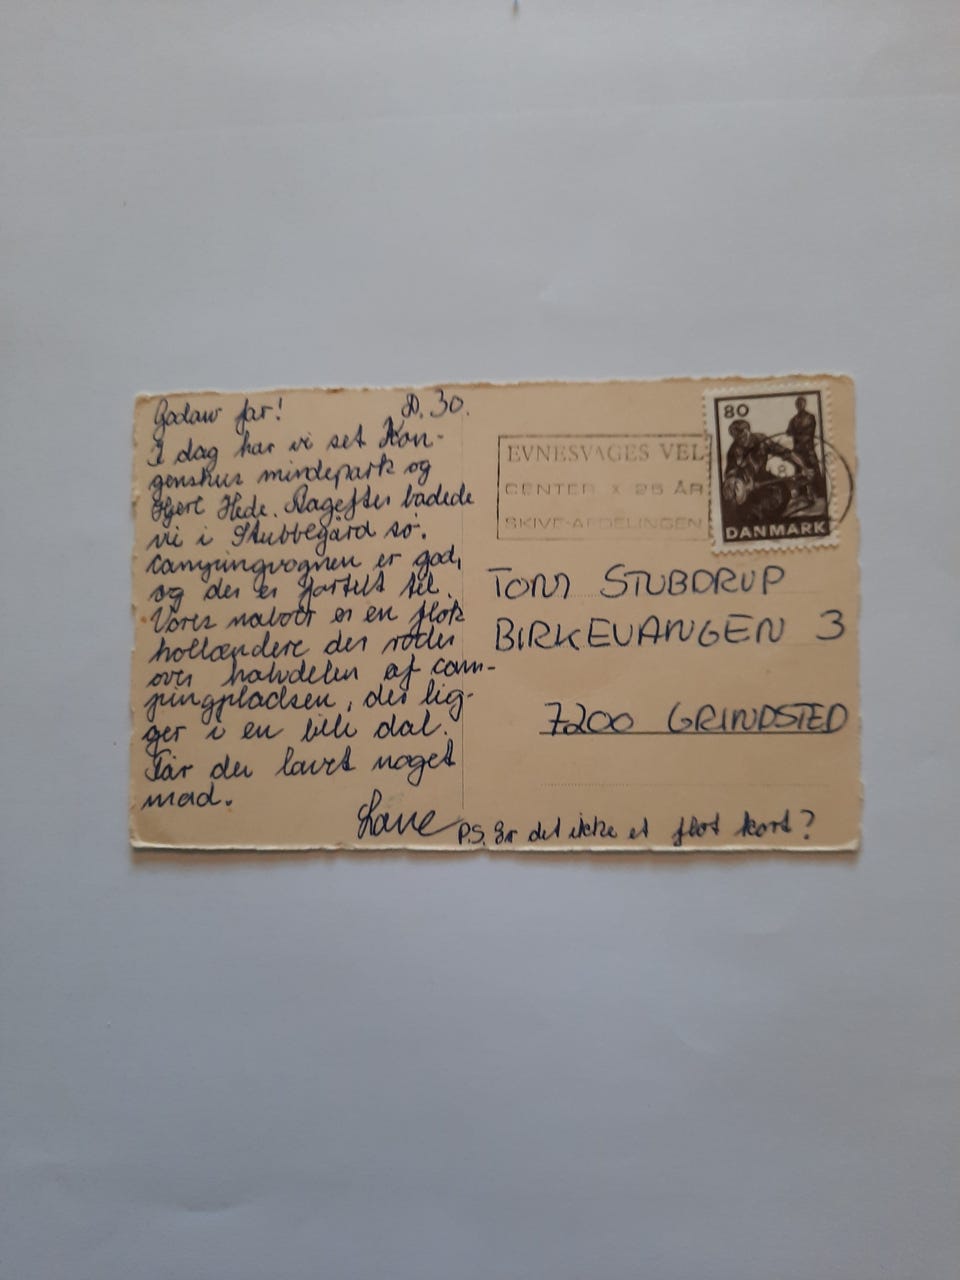 Godaw far! D. 30.
I dag har vi set Kon-
genshus mindepark og
Hjerl Hede. Bagefter badede
vi i Stubbegård sø.
Campingvognen er god,
og der er fortelt til.
Vores naboer er en flok
hollændere der roder
over halvdelen af cam-
pingpladsen, der lig-
ger i en lille dal.
Far der lavet noget
mad.
Lone
P.S. Er det ikke et flot kort?
EVNESVAGES VEL
CENTER X 25 ÅR
SKIVE-AFDELINGEN
80
DANMARK
TOM STUBDRUP
BIRKEVANGEN 3
7200 GRINDSTED